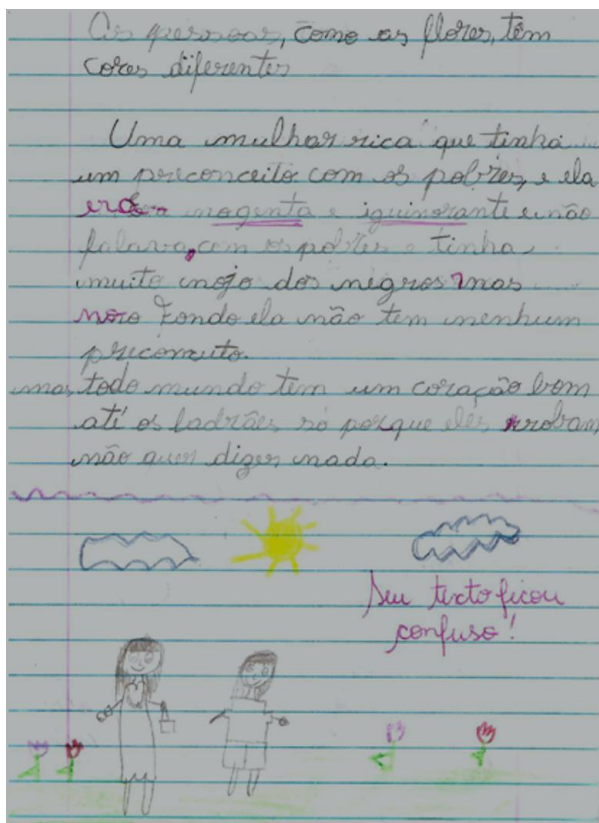 As pessoas, como as flores, têm
cores diferentes
Uma mulhar rica que tinha
um preconceito com os pobres, e ela
era nogenta e iguinorante e não
falava, com os pobres e tinha
muito nojo dos negros mas
no fondo ela não tem nenhum
priconceito.
mas todo mundo tem um coração bom
até os ladrães só porque eles rrobam
não quer dizer nada.
Seu texto ficou
confuso!